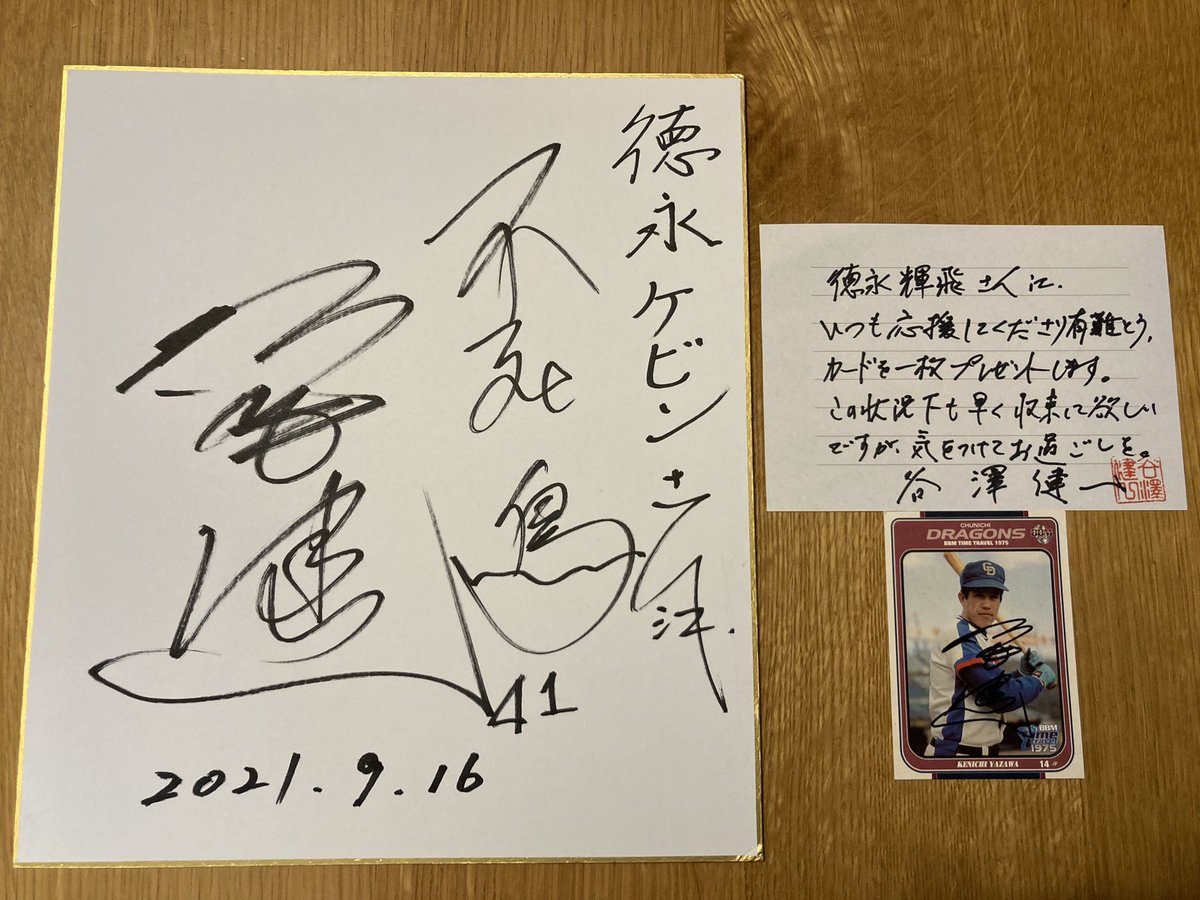 徳永ケビンさん江.
不死鳥
41
2021.9.16
徳永輝飛さんに.
いつも応援してくださり有難とう,
カードを一枚プレゼントします。
この状況下も早く収束して欲しい
ですが、気をつけてお過ごしを。
谷澤健一
CHUNICHI
DRAGONS
BBM TIME TRAVEL 1975
BBM
CD
BBM
Time
Travel
1975
KENICHI YAZAWA 14